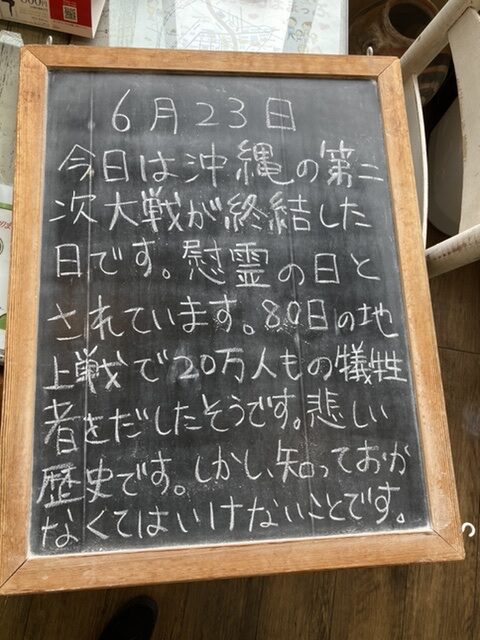 6月23日
今日は沖縄の第二
次大戦が終結した
日です。慰霊の日と
されています。80日の地
上戦で20万人もの犠牲
者をだしたそうです。悲しい
歴史です。しかし、知っておか
なくてはいけないことです。